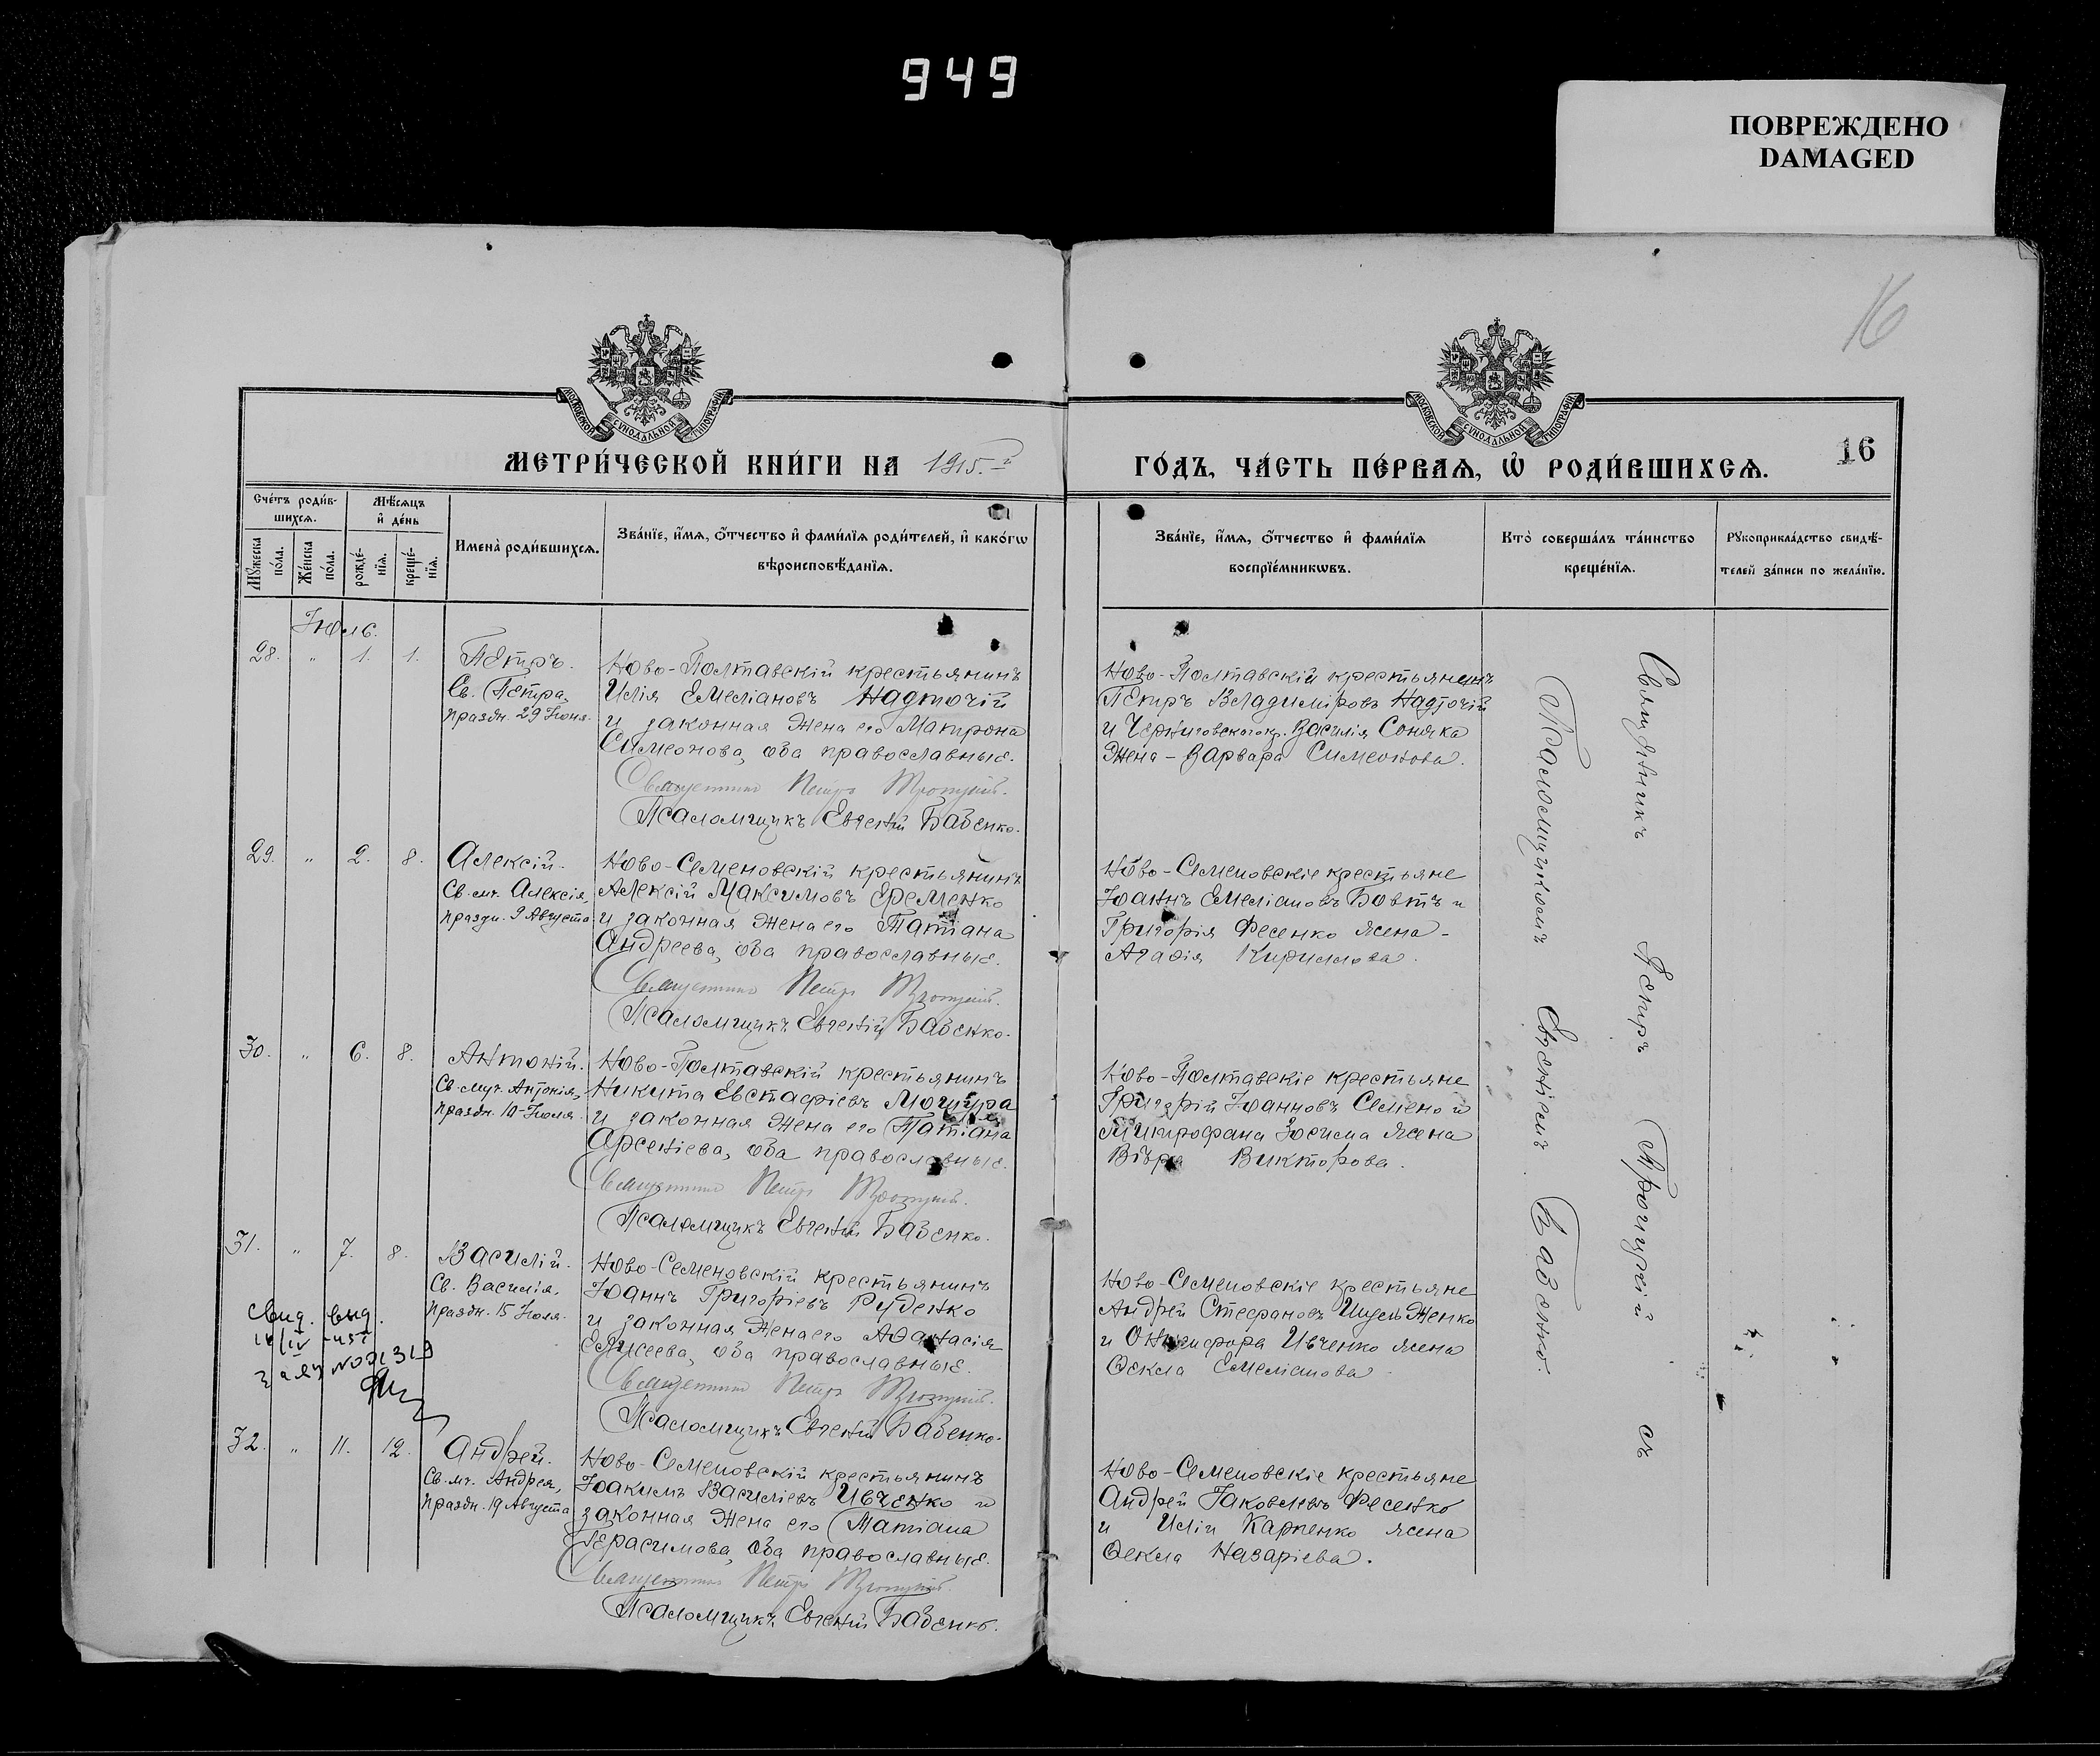 949
ПОВРЕЖДЕНО
DAMAGED
16
МОСКОВСКОЙ СѴНОДАЛЬНОЙ ТИПОГРАФІИ
МОСКОВСКОЙ СѴНОДАЛЬНОЙ ТИПОГРАФІИ
МЕТРИ́ЧЕСКОЙ КНИ́ГИ НА 1915.й
ГО́ДЪ, ЧА́СТЬ ПЕ́РВАѦ, Ѡ҆ РОДИ́ВШИХСѦ.
16
Сче́тъ роди́в-
шихсѧ.
Мѣ́сѧцъ
и҆ де́нь
Мꙋ́жеска
по́ла.
Же́нска
по́ла.
рожде́-
нїѧ.
креще́-
нїѧ.
Имена̀ роди́вшихсѧ.
Зва́нїе, и҆́мѧ, ѻ҆́тчество и҆ фами́лїѧ роди́телей, и҆ како́гѡ
вѣроисповѣ́данїѧ.
Зва́нїе, и҆́мѧ, ѻ҆́тчество и҆ фами́лїѧ
воспрїе́мникѡвъ.
Кто̀ соверша́лъ та́инство
креще́нїѧ.
Рꙋкоприкла́дство свидѣ́-
телей за́писи по жела́нїю.
Іюль.
28. " 1. 1.
Петръ.
Св. Петра,
праздн. 29 Іюня.
Ново-Полтавскій крестьянинъ
Илія Емеліановъ Надточій
и законная жена его Матрона
Симеонова, оба православные.
Священникъ Петръ Троицкій.
Псаломщикъ Евгеній Бабенко.
Ново-Полтавскій крестьянинъ
Петръ Владиміровъ Надточій
и Черниговского кр. Василія Соняка
жена – Варвара Симеонова.
29. " 2. 8.
Алексій.
Св. мч. Алексія,
праздн. 9 Августа
Ново-Семеновскій крестьянинъ
Алексій Максимовъ Еременко
и законная жена его Татіана
Андреева, оба православные.
Священникъ Петръ Троицкій.
Псаломщикъ Евгеній Бабенко.
Ново-Семеновскіе крестьяне
Іоаннъ Емеліановъ Бовтъ и
Григорія Фесенко жена -
Агафія Кириллова.
30. " 6. 8.
Антоній.
Св. муч. Антонія,
праздн. 10-Іюля.
Ново-Полтавскій крестьянинъ
Никита Евстафіевъ Могура
и законная жена его Татіана
Арсеніева, оба православные.
Священникъ Петръ Троицкій.
Псаломщикъ Евгеній Бабенко.
Ново-Полтавскіе крестьяне
Григорій Іоанновъ Семено и
Митрофана Зосима жена
Вѣра Викторова.
31. " 7. 8.
Василій.
Св. Василія,
праздн. 15 Іюля.
Свид. выд.
Ново-Семеновскій крестьянинъ
Іоаннъ Григоріевъ Руденко
и законная жена его Афанасія
Елисеева, оба православные.
Священникъ Петръ Троицкій.
Псаломщикъ Евгеній Бабенко.
Ново-Семеновскіе крестьяне
Андрей Стефановъ
и Онисифора Ивченко жена
Ѳекла Емеліанова
32. " 11. 12.
Андрей.
Св. мч. Андрея,
праздн. 19 Августа
Ново-Семеновскій крестьянинъ
Іоакимъ Василіевъ Ивченко и
законная жена его Татіана
Герасимова, оба православные.
Священникъ Петръ Троицкій.
Псаломщикъ Евгеній Бабенко.
Ново-Семеновскіе крестьяне
Андрей Іаковлевъ Фесенко
и Иліи Карпенко жена
Ѳекла Назаріева.
Священникъ Петръ Троицкій съ
Псаломщикомъ Евгеніемъ Бабенко.